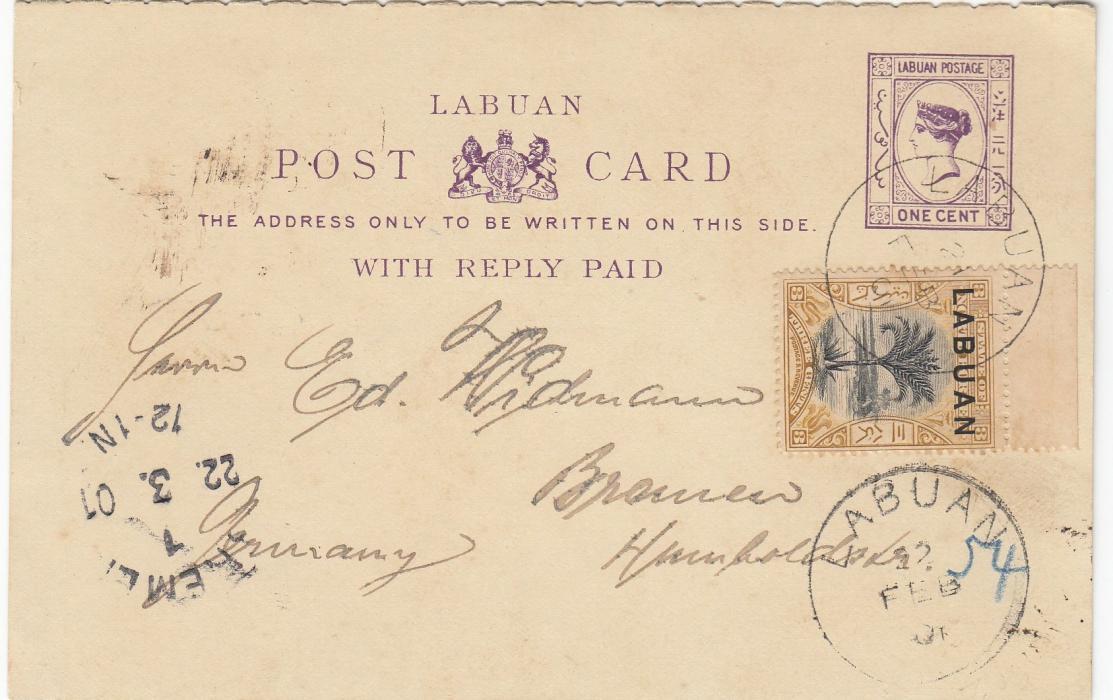 LABUAN POSTAGE
ONE CENT
LABUAN
POST CARD
THE ADDRESS ONLY TO BE WRITTEN ON THIS SIDE.
WITH REPLY PAID
LABUAN
21
FEB
01
LABUAN
Herrn Ed. Widmann
Bremen
Germany Humboldtstr
54
12-1N.
22.
3.
01
1
LABUAN
22
FEB
01